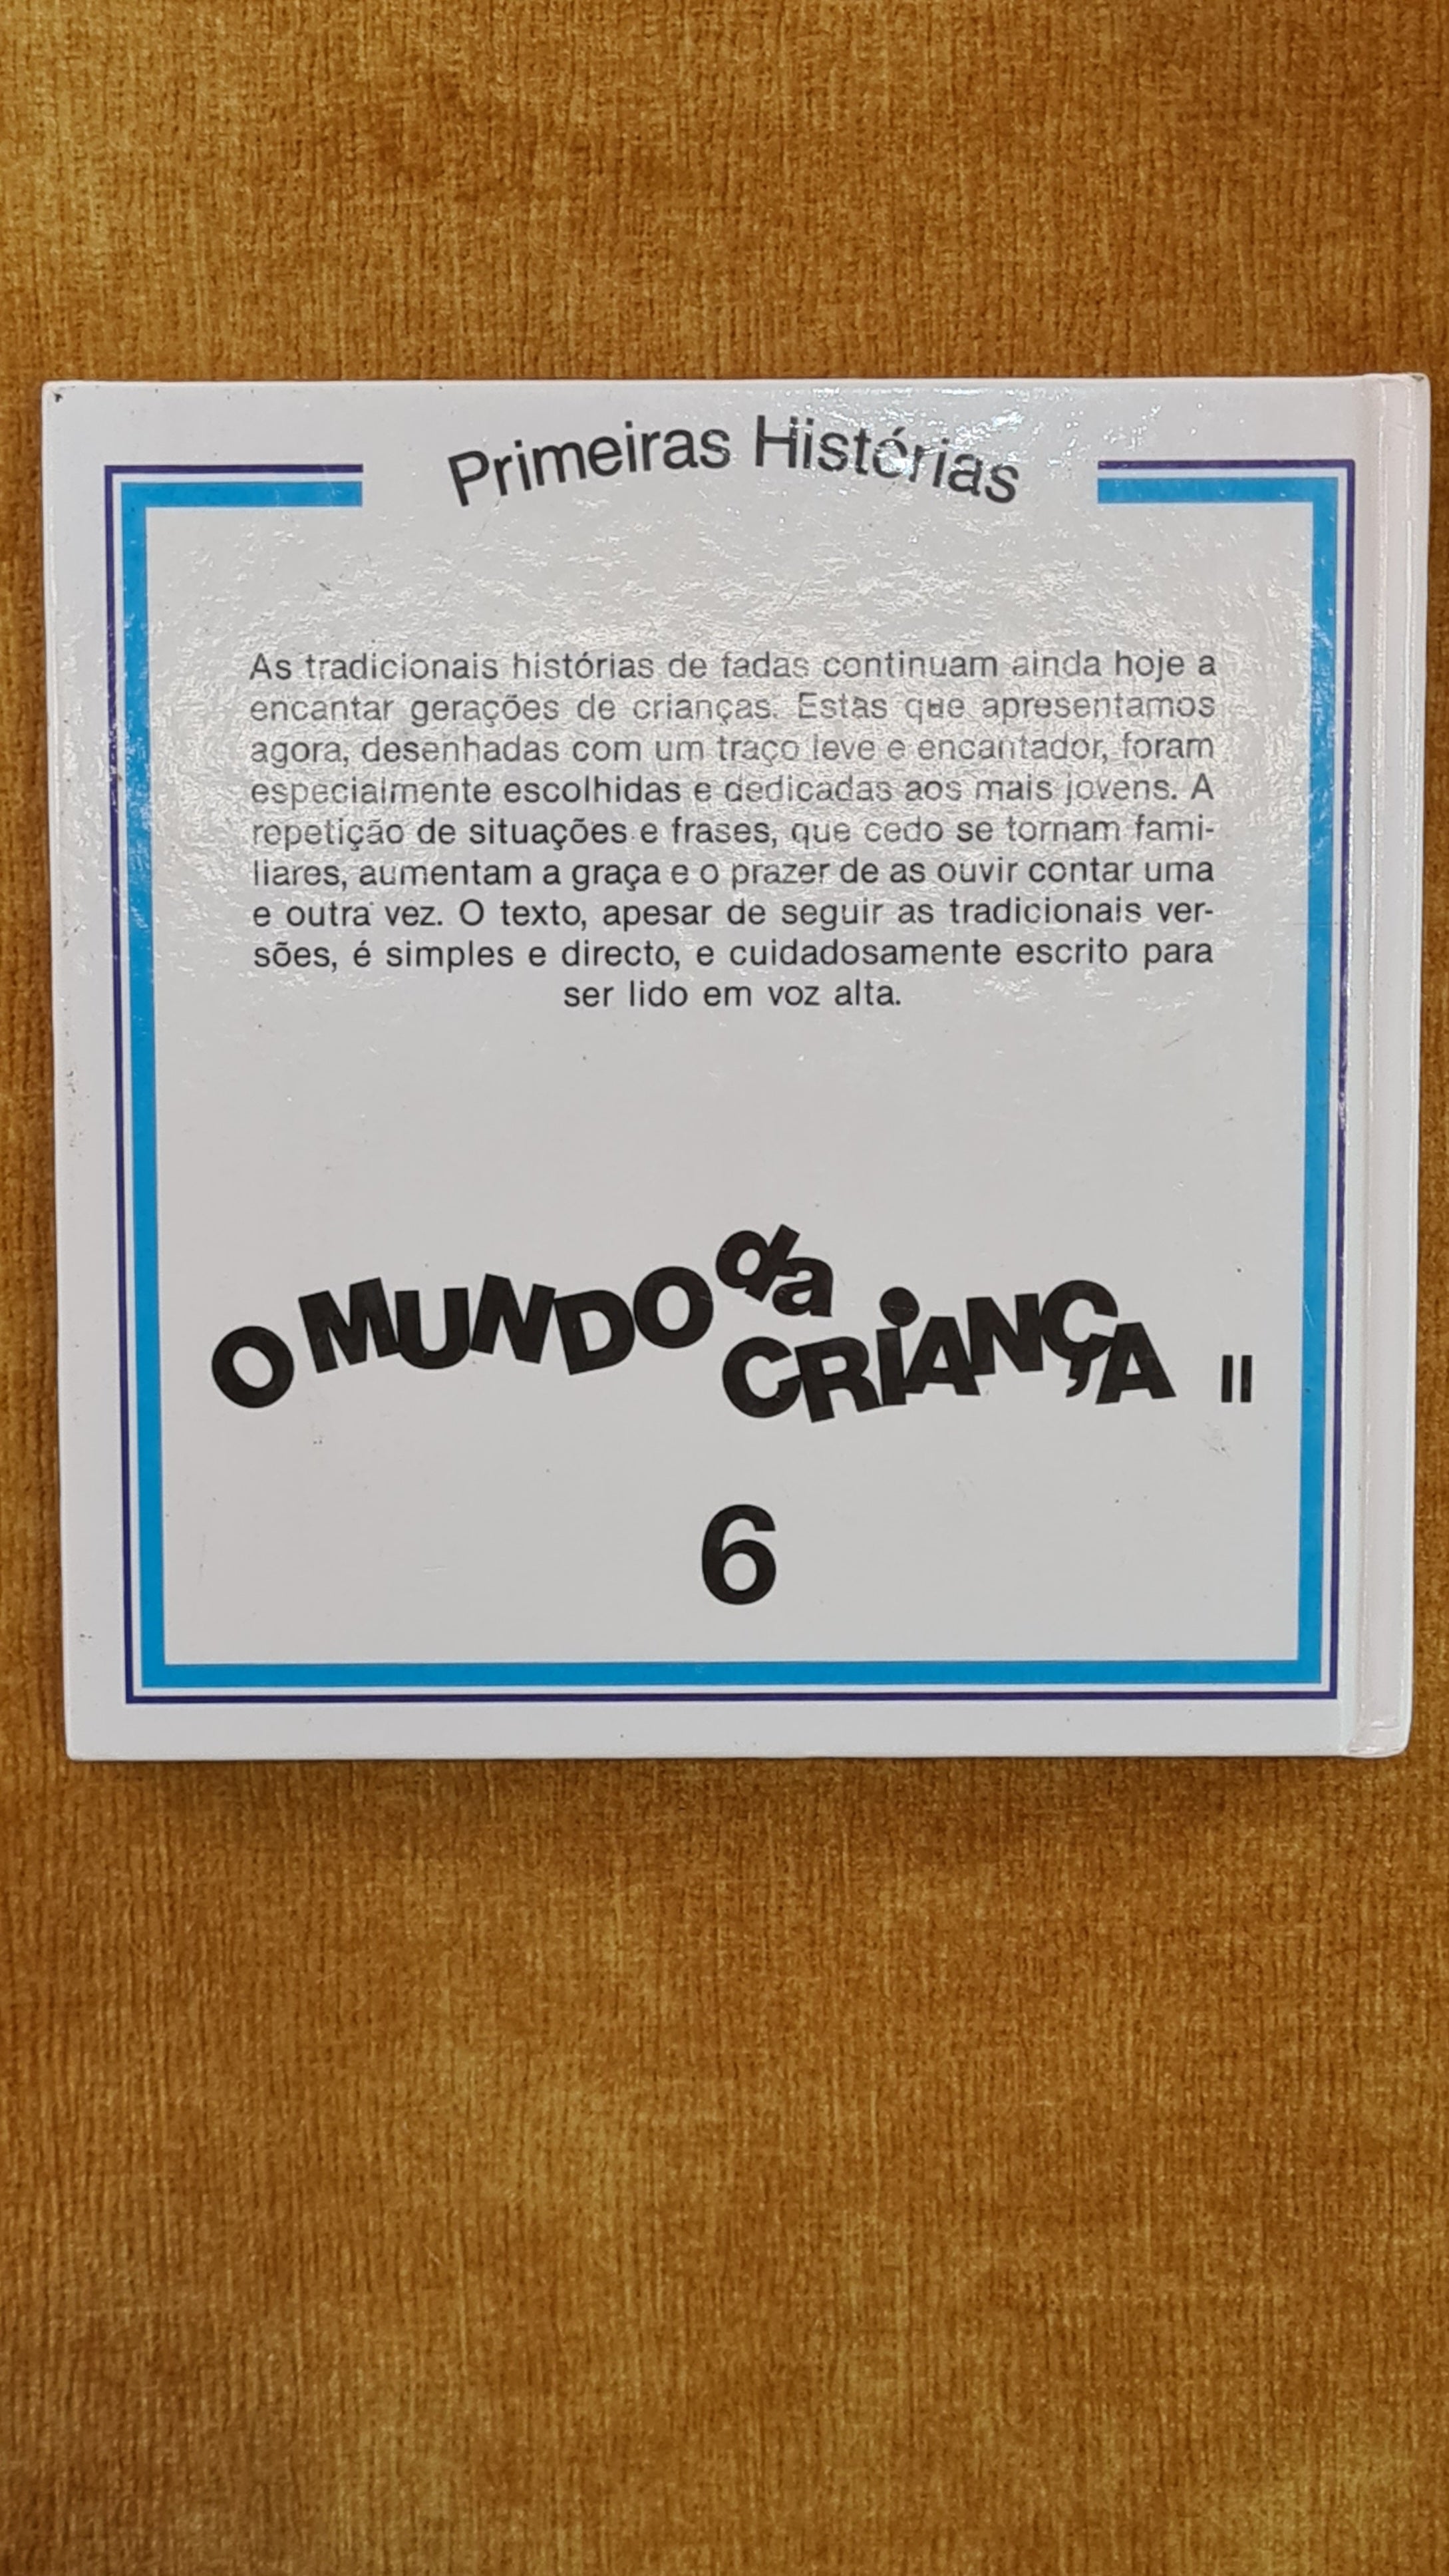 Primeiras Histórias
As tradicionais histórias de fadas continuam ainda hoje a
encantar gerações de crianças. Estas que apresentamos
agora, desenhadas com um traço leve e encantador, foram
especialmente escolhidas e dedicadas aos mais jovens. A
repetição de situações e frases, que cedo se tornam fami-
liares, aumentam a graça e o prazer de as ouvir contar uma
e outra vez. O texto, apesar de seguir as tradicionais ver-
sões, é simples e directo, e cuidadosamente escrito para
ser lido em voz alta.
O MUNDO da CRiANÇA II
6